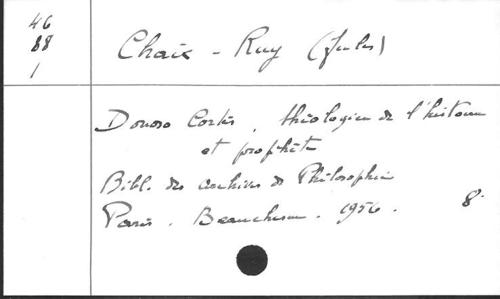 46
88
1
Chaix - Ruy (Jules)
Donoso Cortès, théologien de l'histoire
et prophète
Bibl. des archives de Philosophie
Paris. Beauchesne. 1956. 8°